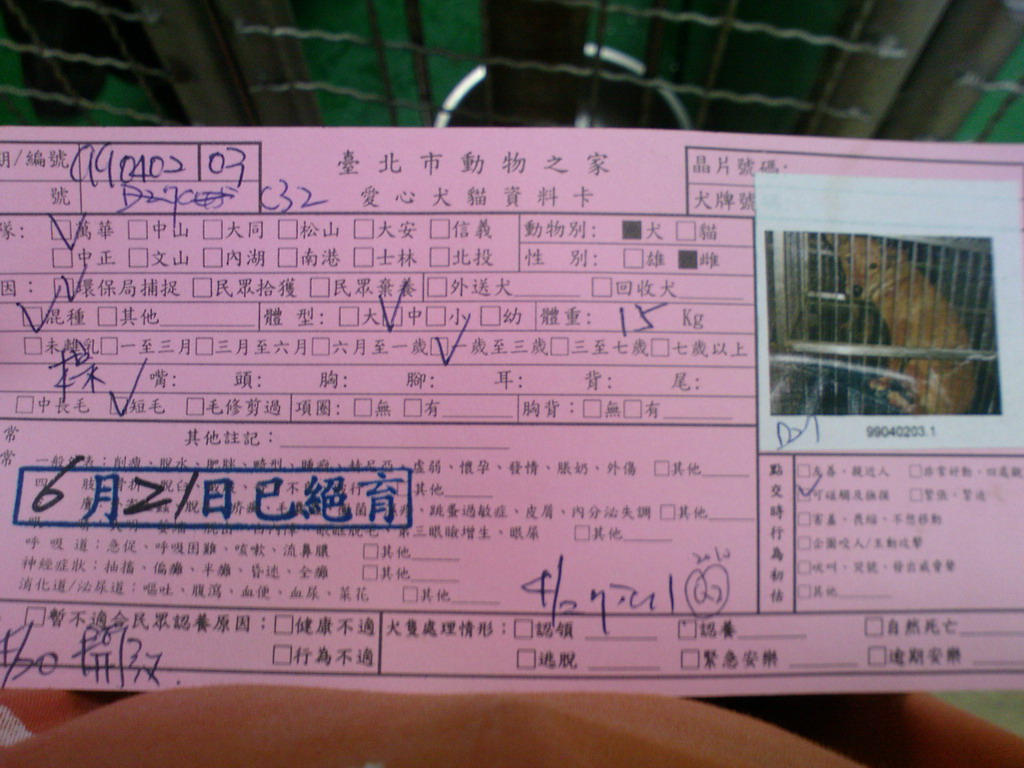 期/編號 990402 03 臺北市動物之家 晶片號碼:
號 C32 愛心犬貓資料卡 犬牌號
隊: ☑萬華 □中山 □大同 □松山 □大安 □信義 動物別: ■犬 □貓
□中正 □文山 □內湖 □南港 □士林 □北投 性 別: □雄 ■雌
因: ☑環保局捕捉 □民眾拾獲 □民眾棄養 □外送犬 □回收犬
☑混種 □其他 體 型: □大 ☑中 □小 □幼 體重: 15 Kg
□未離乳 □一至三月 □三月至六月 □六月至一歲 ☑一歲至三歲 □三至七歲 □七歲以上
嘴: 頭: 胸: 腳: 耳: 背: 尾:
□中長毛 ☑短毛 □毛修剪過 項圈: □無 □有 胸背: □無 □有
99040203.1
常 其他註記:
常 虛弱、懷孕、發情、脹奶、外傷 □其他
□其他
跳蚤過敏症、皮屑、內分泌失調 □其他
第三眼瞼增生、眼屎 □其他
6月21日已絕育
呼吸道: 急促、呼吸困難、咳嗽、流鼻膿 □其他
神經症狀: 抽搐、偏癱、半癱、昏迷、全癱 □其他
消化道/泌尿道: 嘔吐、腹瀉、血便、血尿、菜花 □其他
點交時行為初估
□友善、親近人 □非常好動、四處觀
☑可碰觸及撫摸 □緊張、緊迫
□害羞、畏縮、不想移動
□企圖咬人/主動攻擊
□吠叫、哭號、發出威脅聲
□其他
□暫不適合民眾認養原因: □健康不適 犬隻處理情形: □認領 □認養 □自然死亡
□行為不適 □逃脫 □緊急安樂 □逾期安樂